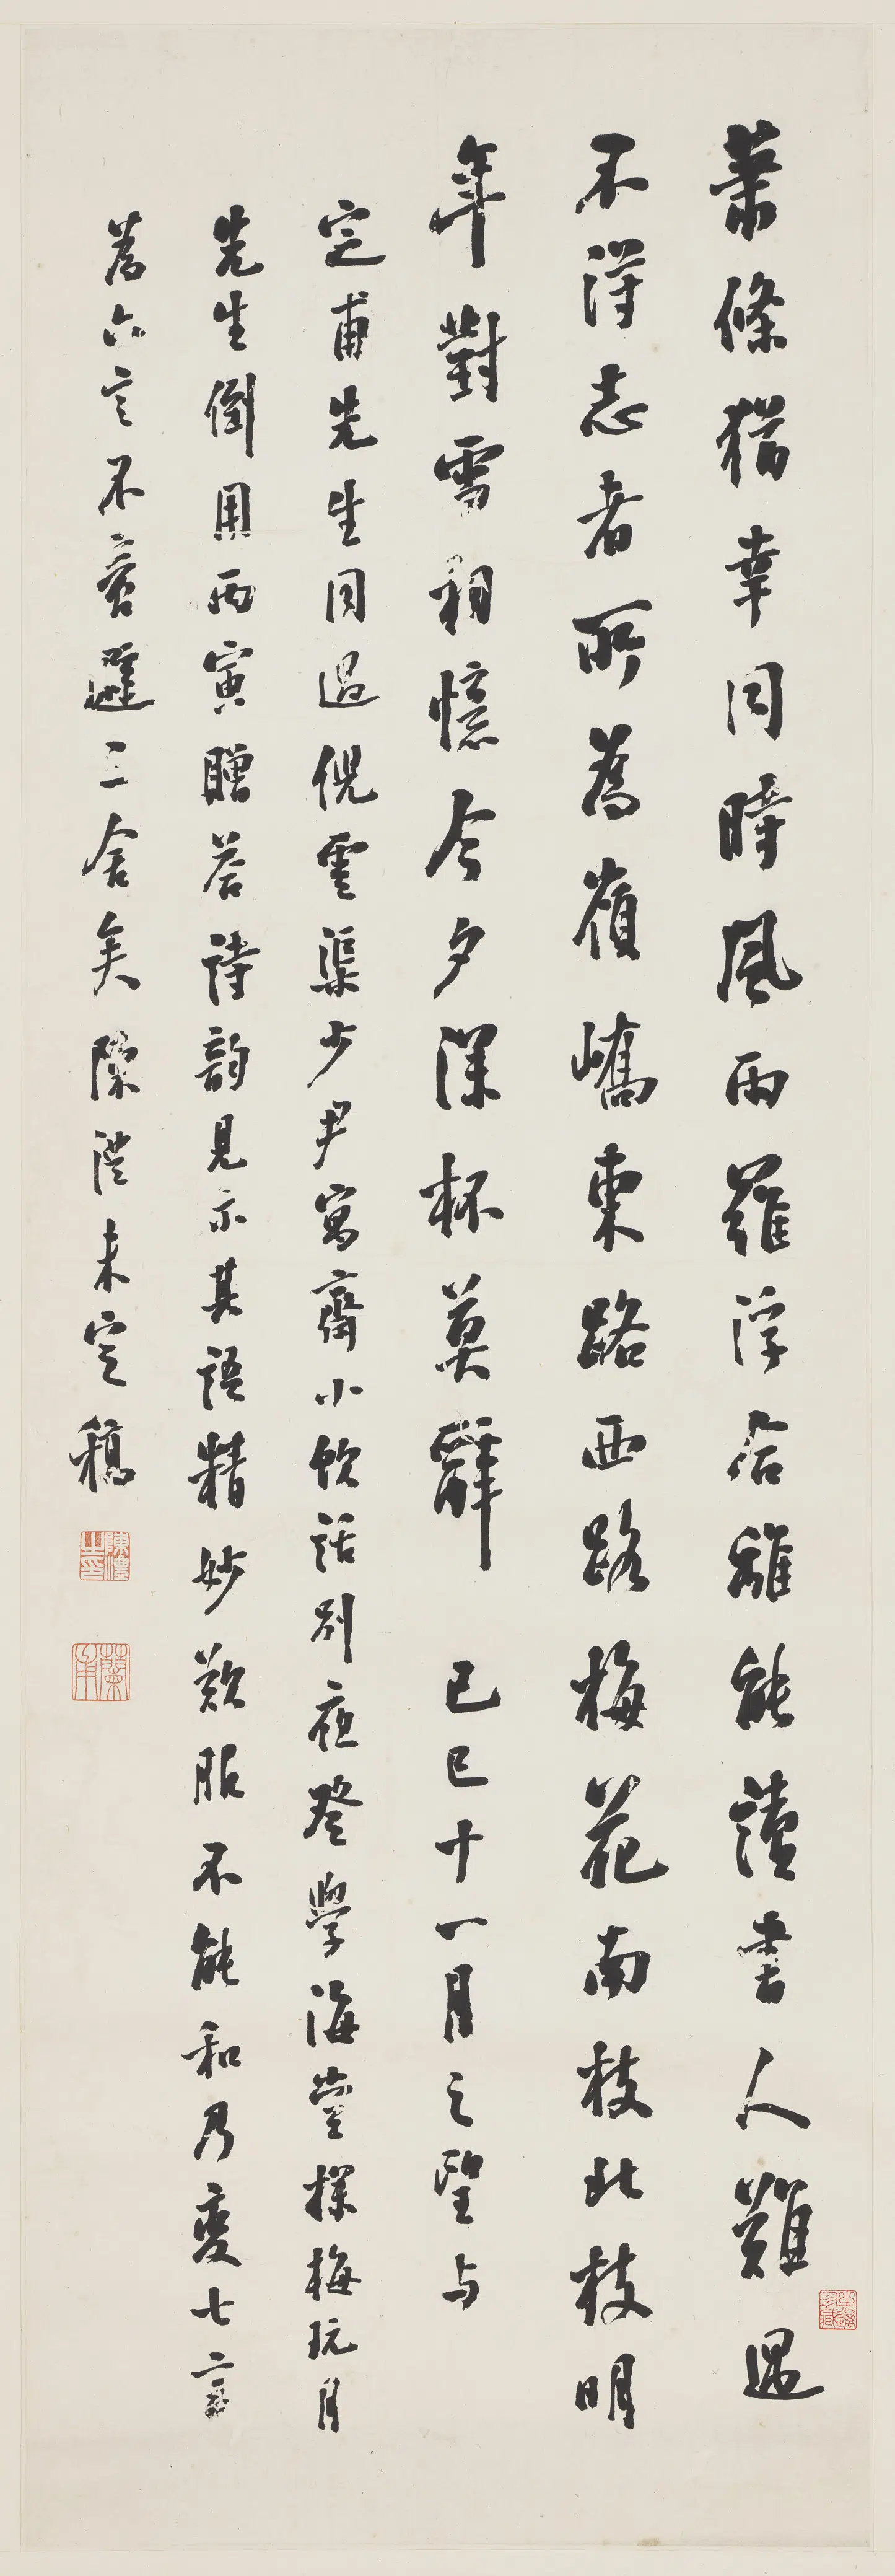 蕭條猶幸同時風雨羅浮合離能讀書人難遇
不得志者所爲嶺嶠東路西路梅花南枝北枝明
年對雪相憶今夕深杯莫辭 己巳十一月之望与
定甫先生同過倪雲渠少尹寓齋小飲話別夜登學海堂探梅玩月
先生倒用丙寅贈答詩韵見示其語精妙歎服不能和乃變七言
爲六言不啻避三舍矣陳澧未定稿
陳澧之印
蘭甫